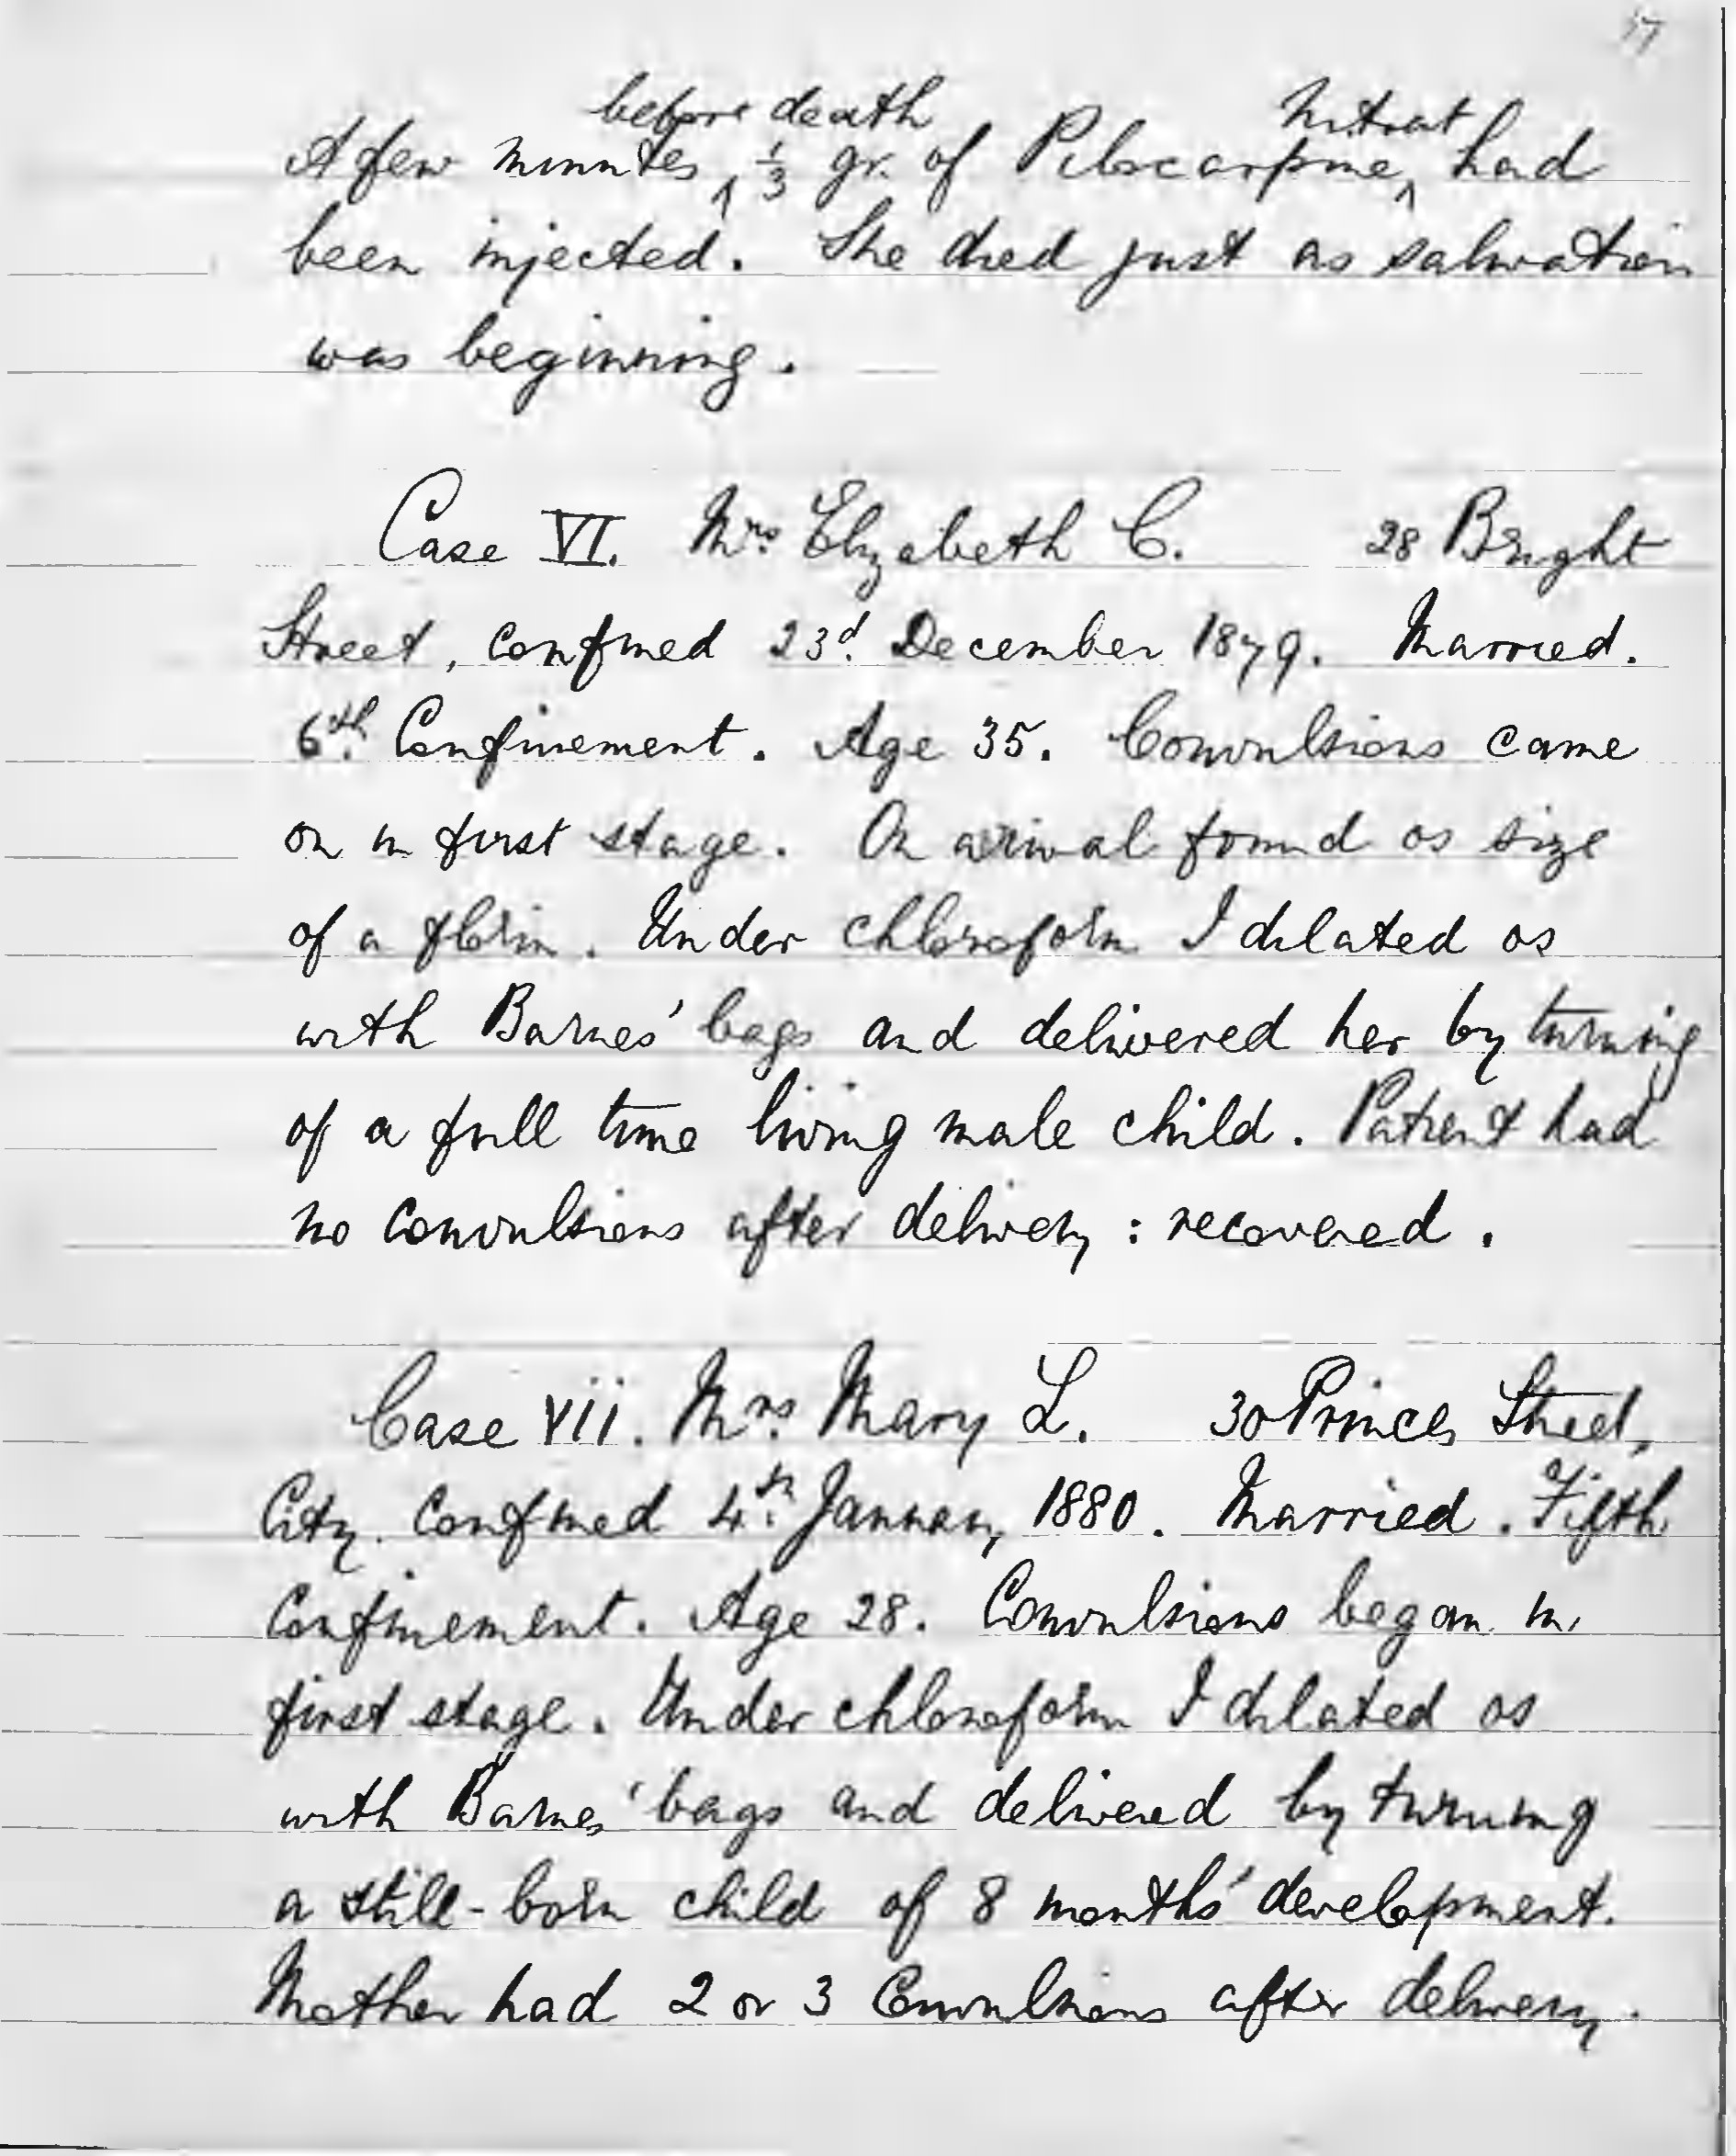 A few minutes ‸before death 1/3 gr. of Pilocarpine ‸Nitrat had
been injected. She died just as salivation
was beginning.
Case VI. Mrs. Elizabeth C. 28 Bright
Street, confined 23d. December 1879. Married.
6th. Confinement. Age 35. Convulsions came
on in first stage. On arrival found os size
of a florin. Under chloroform I dilated os
with Barnes' bags and delivered her by turning
of a full time living male child. Patient had
no convulsions after delivery : recovered.
Case VII. Mrs. Mary L. 30 Princes Street,
City. Confined 4th. January, 1880. Married. Fifth
Confinement. Age 28. Convulsions began in
first stage. Under chloroform I dilated os
with Barnes' bags and delivered by turning
a still-born child of 8 months' development.
Mother had 2 or 3 Convulsions after delivery.